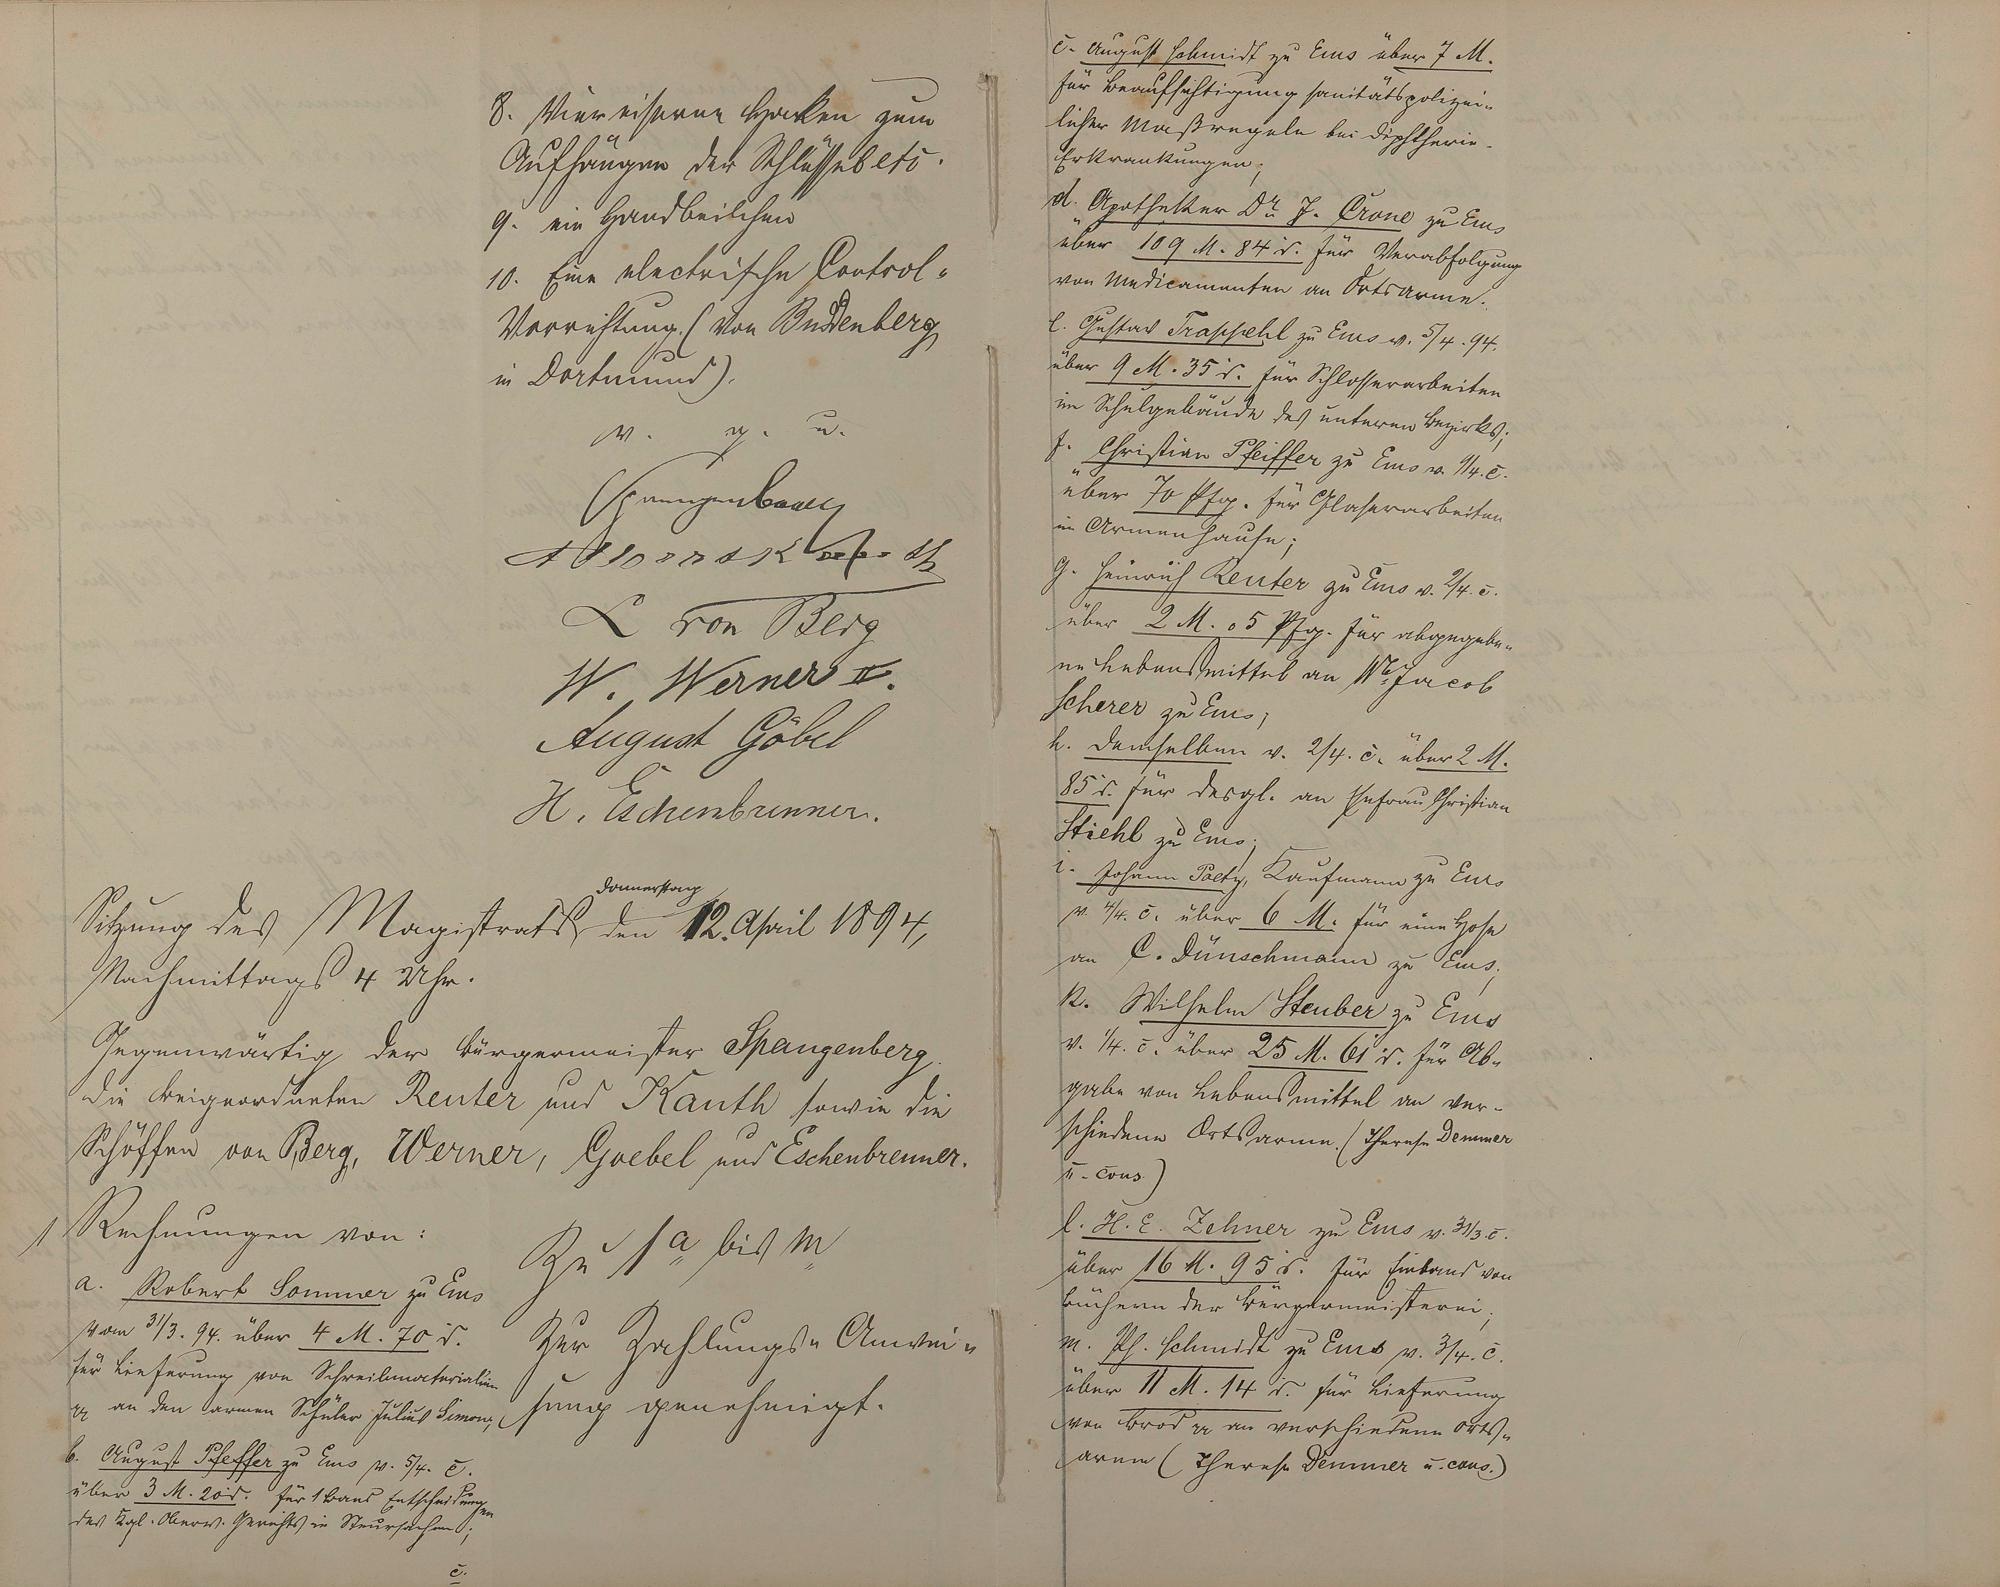 8. Vier eiserne Hacken zum
Aufhängen der Schlüssel etc.
9. ein Handbeilchen
10. Eine electrische Control-
Vorrichtung (von Buddenberg
in Dortmund).
v. g. u.
Spangenberg
L von Berg
W. Werner II.
August Göbel
H. Eschenbrenner.
Donnerstag
Sitzung des Magistrats, den 12. April 1894,
Nachmittags 4 Uhr.
Gegenwärtig der Bürgermeister Spangenberg
die Beigeordneten Reuter und Kauth sowie die
Schöffen von Berg, Werner, Goebel und Eschenbrenner.
1 Rechnungen von:
a. Robert Sommer zu Ems
vom 31/3. 94. über 4 M. 70 d.
für Lieferung von Schreibmaterialien
pp an den armen Schüler Julius Simon,
b. August Pfeffer zu Ems v. 5/4. c.
über 3 M. 20 d. für 1 Band Entscheidungen
des Kgl. Oberv. Gerichts in Steuersachen;
c.
Zu 1 a bis m
Zur Zahlungs-Anwei-
sung genehmigt.
c. August Schmidt zu Ems über 7 M.
für Beaufsichtigung sanitätspolizei-
licher Maßregeln bei Diphtherie-
Erkrankungen;
d. Apotheker Dr. J. Crone zu Ems
über 109 M. 84 d. für Verabfolgung
von Medicamenten an Ortsarme.
e. Gustav Traphehl zu Ems v. 5/4. 94.
über 9 M. 35 d. für Schlosserarbeiten
im Schulgebäude des unteren Bezirks;
f. Christian Pfeiffer zu Ems v. 1/4. c.
über 70 Pfg. für Glaserarbeiten
im Armenhause;
g. Heinrich Reuter zu Ems v. 2/4. c.
über 2 M. 05 Pfg. für abgegebe-
ne Lebensmittel an Ww. Jacob
Scherer zu Ems;
h. demselben v. 2/4. c. über 2 M.
85 d. für desgl. an Ehefrau Christian
Stiehl zu Ems;
i. Johann Paety, Kaufmann zu Ems
v. 4/4. c. über 6 M. für eine Hose
an C. Dünschmann zu Ems;
k. Wilhelm Steuber zu Ems
v. 1/4. c. über 25 M. 61 d. für Ab-
gabe von Lebensmittel an ver-
schiedene Ortsarme (Therese Demmer
u. cons.)
l. H. E. Zehner zu Ems v. 31/3. c.
über 16 M. 95 d. für Einband von
Büchern der Bürgermeisterei;
m. Ph. Schmidt zu Ems v. 3/4. c.
über 11 M. 14 d. für Lieferung
von Brod pp an verschiedene Orts-
arme (Therese Demmer u. cons.)